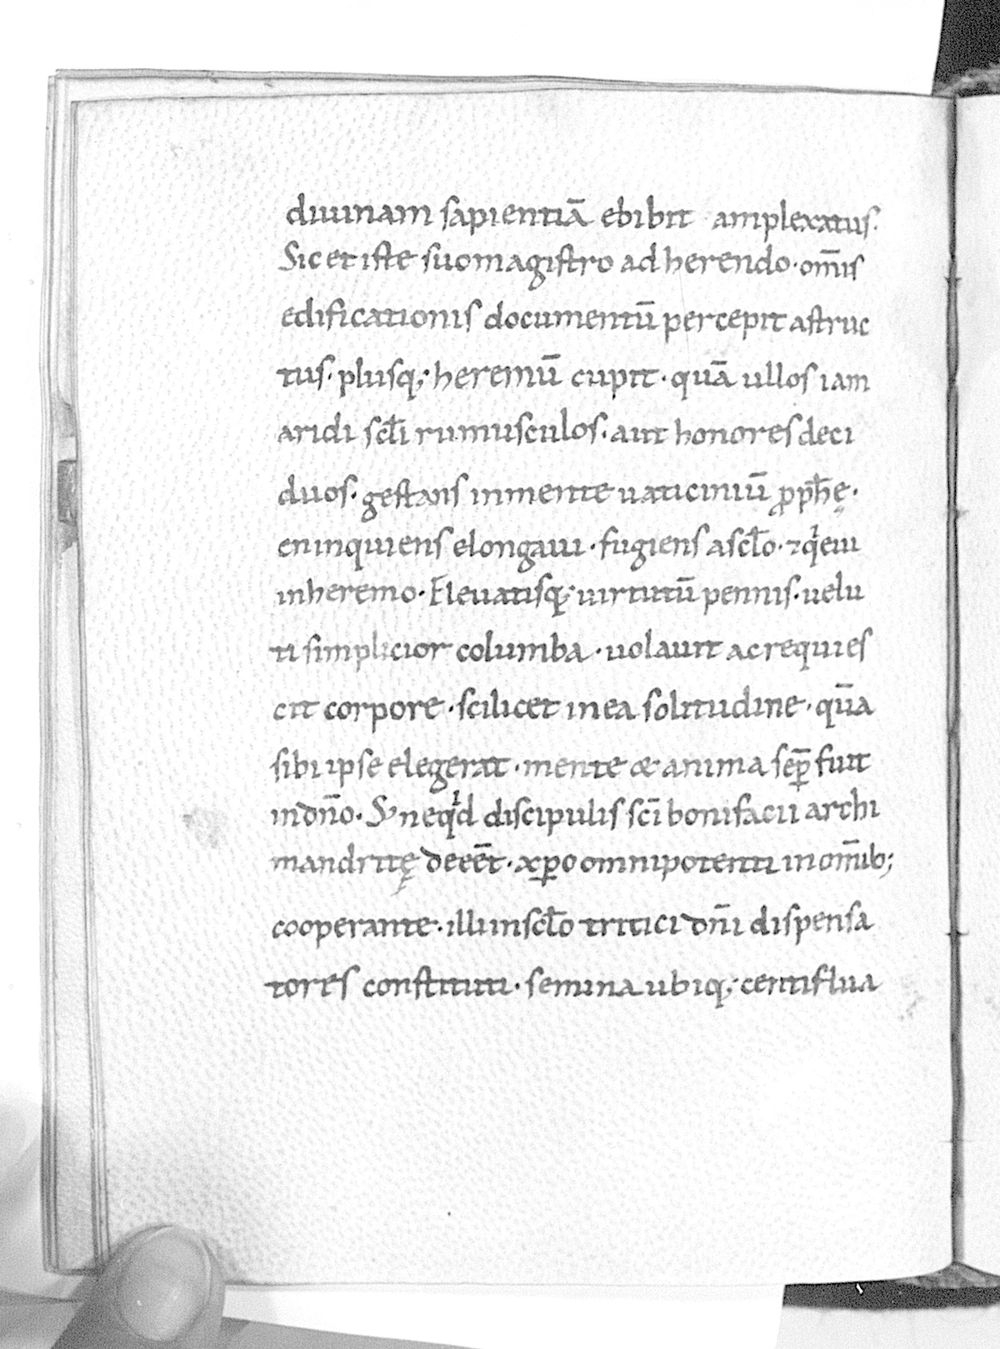 diuinam sapientiā ebibit amplexatus.
Sic et iste suo magistro adherendo · om̄is
edificationis documentū percepit astruc
tus · plusq; · heremū cupit · quā ullos iam
aridi scł̄i rumusculos · aut honores deci
duos · gestans in mente uaticiniū ꝓpħę ·
en inquiens elongaui · fugiens a scło · ⁊ qͥeui
in heremo · Eleuatisq; · uirtutū pennis · uelu
ti simplicior columba · uolauit ac requies
cit corpore · scilicet in ea solitudine · qūa
sibi ipse elegerat · mente & anima sēp fuit
in dn̄o · S; neqͥd discipulis sc̄i bonifacii archi
mandritę deeēt · xp̄o omnipotenti in om̄ib;
cooperante · illi in scło tritici dn̄i dispensa
tores constituti · semina ubiq; · centiflua